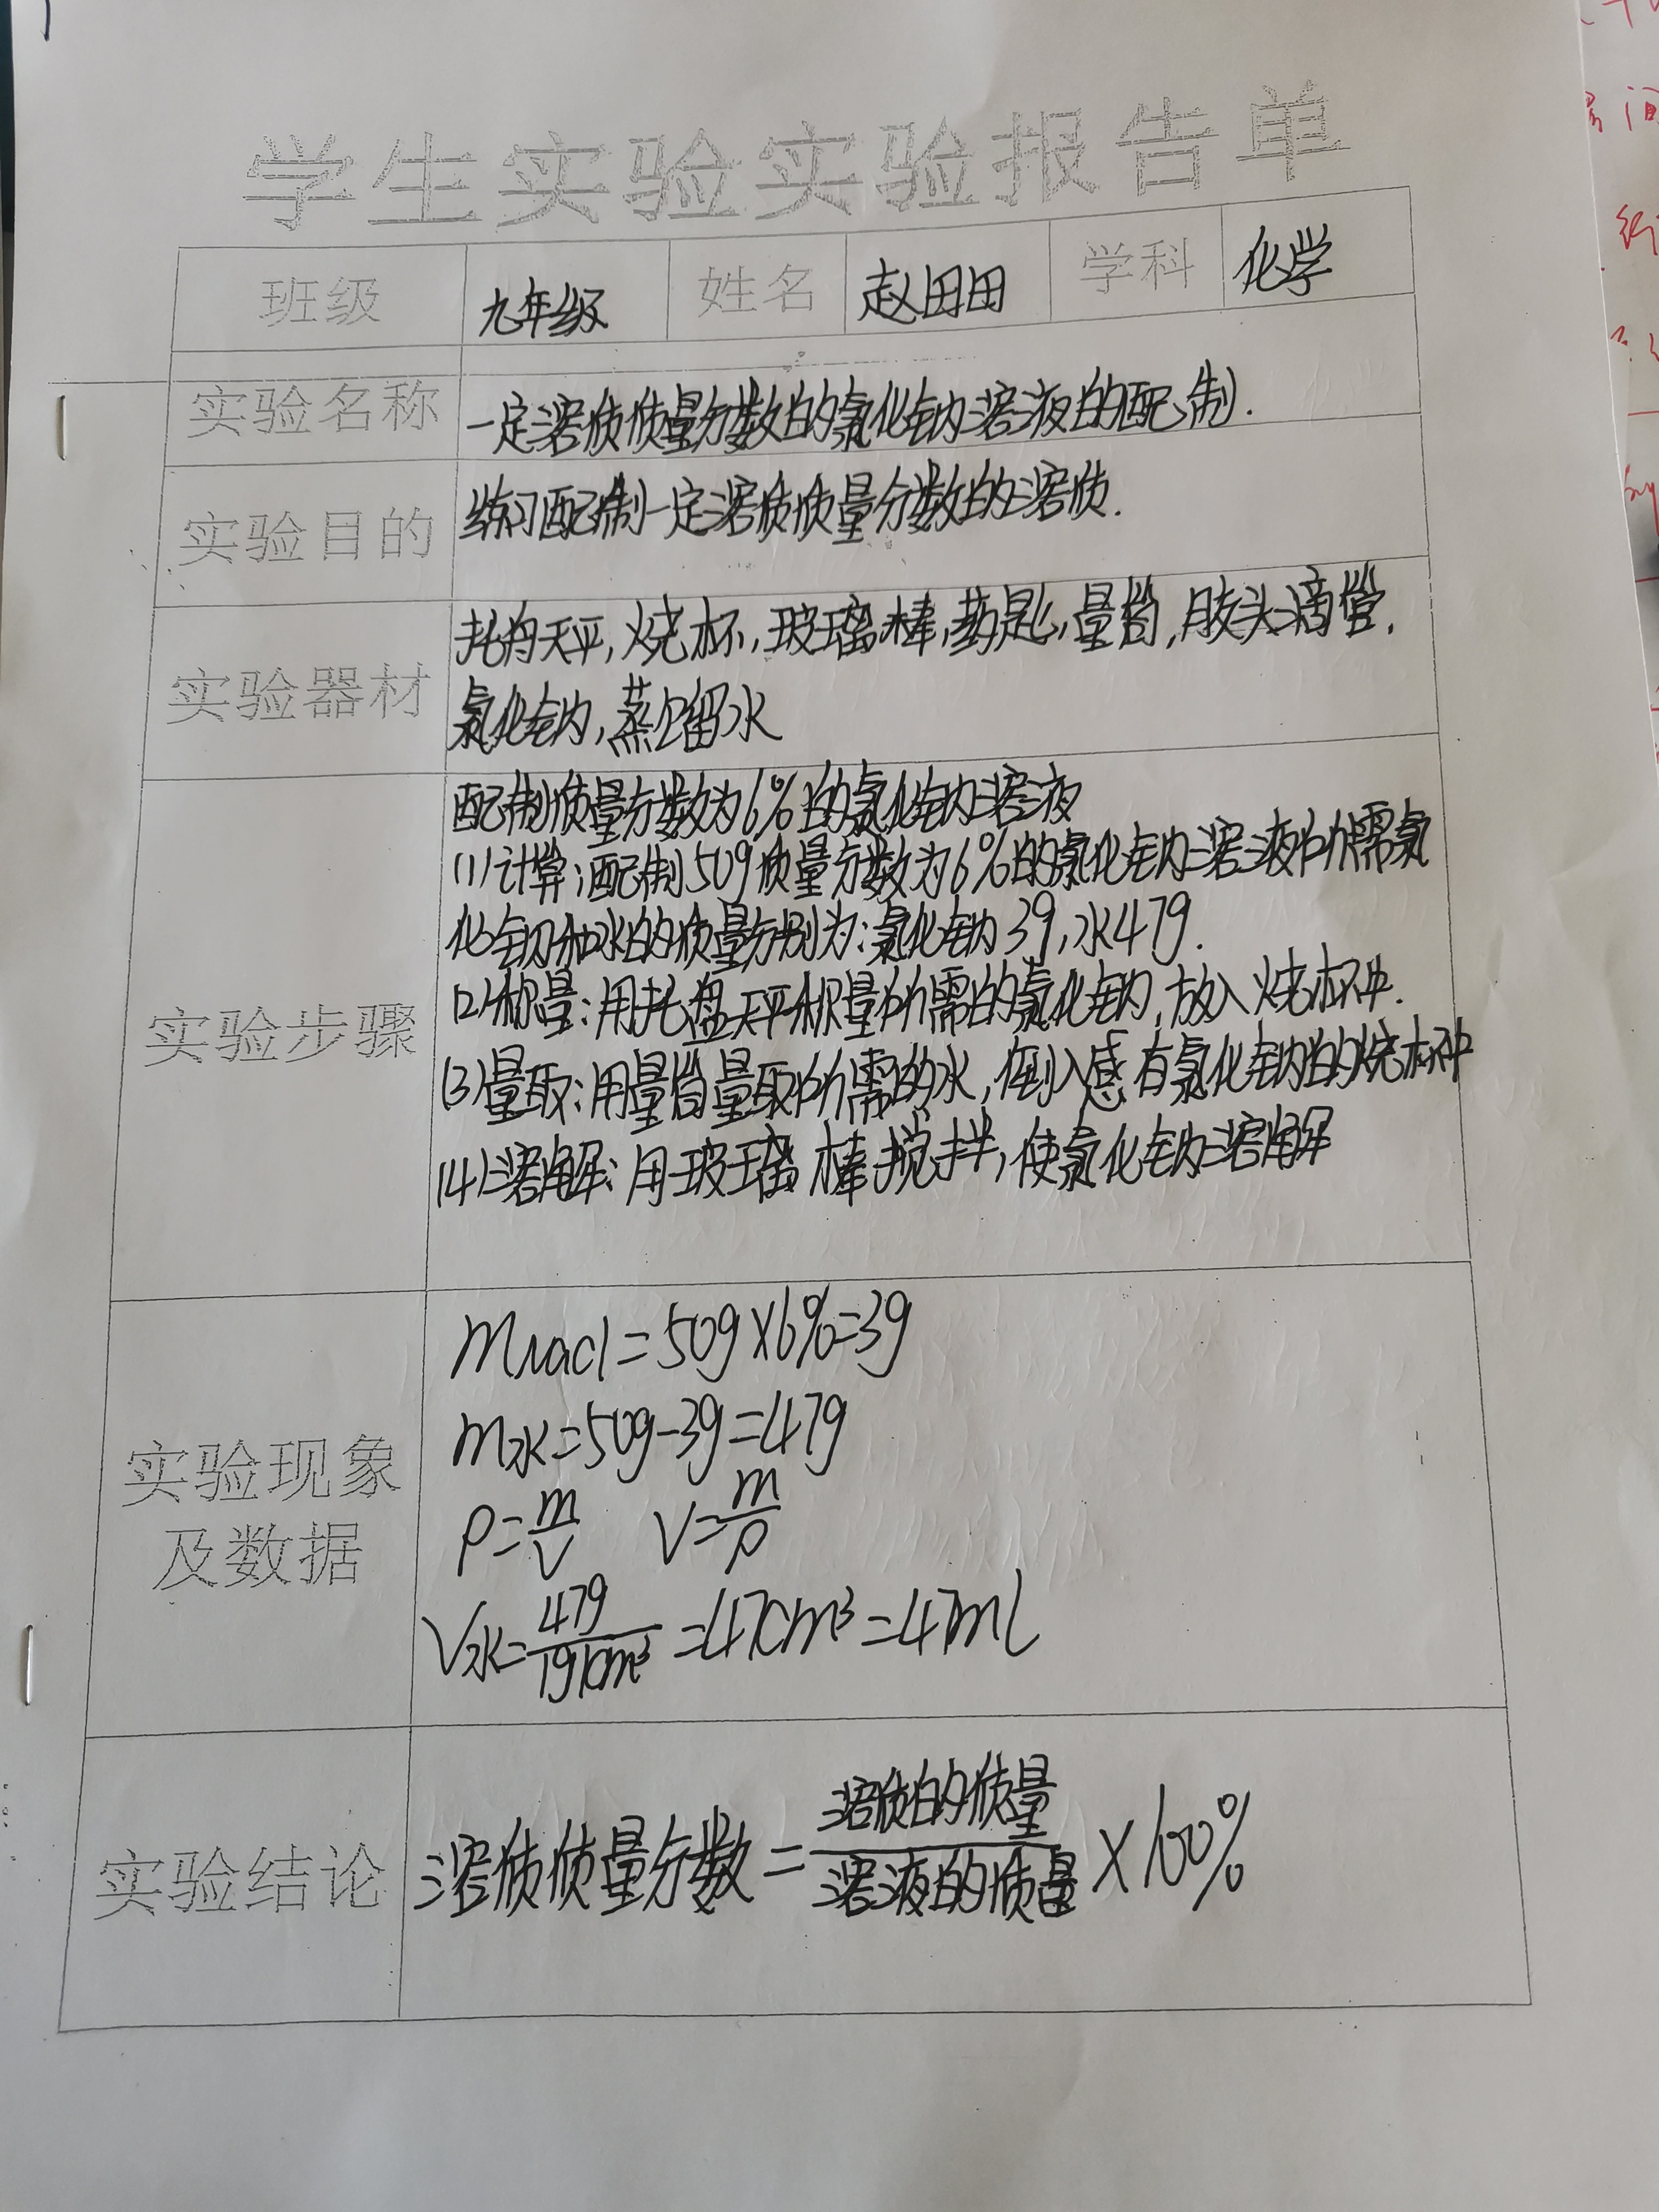 学生实验实验报告单
班级 九年级 姓名 赵田田 学科 化学
实验名称 一定溶质质量分数的氯化钠溶液的配制.
实验目的 练习配制一定溶质质量分数的溶质.
实验器材
托舟天平,烧杯,玻璃棒,药匙,量筒,胶头滴管,
氯化钠,蒸馏水
实验步骤
配制质量分数为6%的氯化钠溶液
(1)计算:配制50g质量分数为6%的氯化钠溶液所需氯
化钠和水的质量分别为:氯化钠3g,水47g.
(2)称量:用托盘天平称量所需的氯化钠,放入烧杯中.
(3)量取:用量筒量取所需的水,倒入盛有氯化钠的烧杯中
(4)溶解:用玻璃棒搅拌,使氯化钠溶解
实验现象
及数据
mNacl=50g×6%=3g
m水=50g-3g=47g
ρ=m/V V=m/ρ
V水=47g/1g/cm³=47cm³=47mL
实验结论
溶质质量分数=溶质的质量/溶液的质量×100%